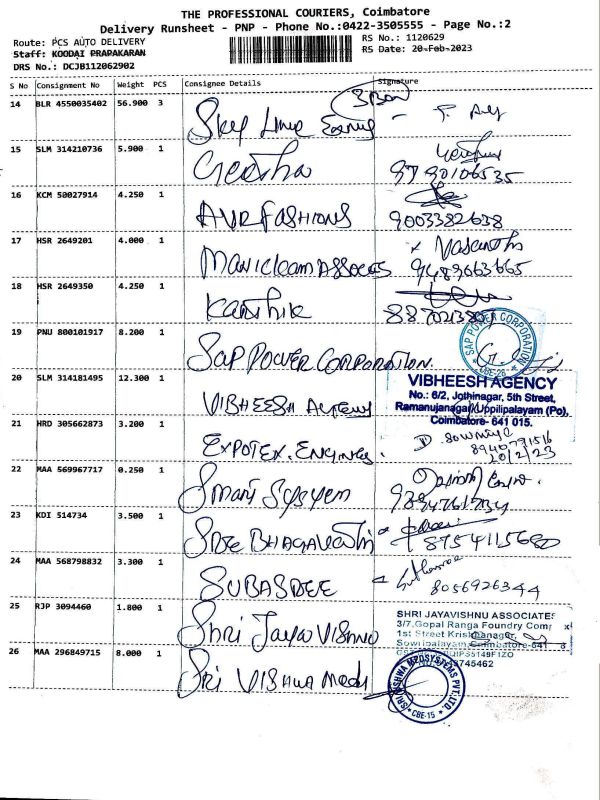 THE PROFESSIONAL COURIERS, Coimbatore
Delivery Runsheet - PNP - Phone No.:0422-3505555 - Page No.:2
Route: PCS AUTO DELIVERY
RS No.: 1120629
Staff: KOODAI PRAPAKARAN
RS Date: 20-Feb-2023
DRS No.: DCJB112062902
S No Consignment No Weight PCS Consignee Details Signature
14 BLR 4550035402 56.900 3
15 SLM 314210736 5.900 1 Geetha 9790106535
16 KCM 50027914 4.250 1 AVR FASHIONS 9003382638
17 HSR 2649201 4.000 1 Vasanth
9489663665
18 HSR 2649350 4.250 1 Karthik
19 PNU 800101917 8.200 1 SAP POWER CORPORATION. SAP POWER CORPORATION CBE-26
20 SLM 314181495 12.300 1 VIBHEESH AGENCY
VIBHEESH AGENCY
No.: 6/2, Jothinagar, 5th Street,
Ramanujanagar, Uppilipalayam (Po),
Coimbatore- 641 015.
21 HRD 305662873 3.200 1 EXPOTEX. D. Sowmiya
8940791516
20/2/23
22 MAA 569967717 0.250 1 Smart System
23 KDI 514734 3.500 1 SREE BHAGAVATHI 8754115680
24 MAA 568798832 3.300 1 SUBASREE 8056926344
25 RJP 3094460 1.800 1 Shri Jaya VISHNU
SHRI JAYAVISHNU ASSOCIATES
3/7, Gopal Ranga Foundry Com
1st Street Krishnanagar,
Sowripalayam Coimbatore-641
26 MAA 296849715 8.000 1 SRI VISHWA Medi
SRI VISHWA MEDSYSTEMS PVT. LTD. CBE-15